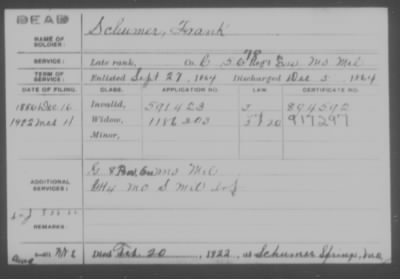 DEAD
NAME OF SOLDIER: Schumer, Frank
SERVICE: Late rank, Co. C 78 Regt Mo Mil
TERM OF SERVICE: Enlisted Sept 27, 1864 Discharged Dec 5, 1864
DATE OF FILING. CLASS. APPLICATION NO. LAW. CERTIFICATE NO.
1886 Dec 16 Invalid, 591423 894592
1922 Mch 11 Widow, 1186303 917297
Minor,
ADDITIONAL SERVICES:
G 8 Mo Mil
Mo S Mil Inf
REMARKS:
Died Feb. 20, 1922, at Schumer Springs, Mo.